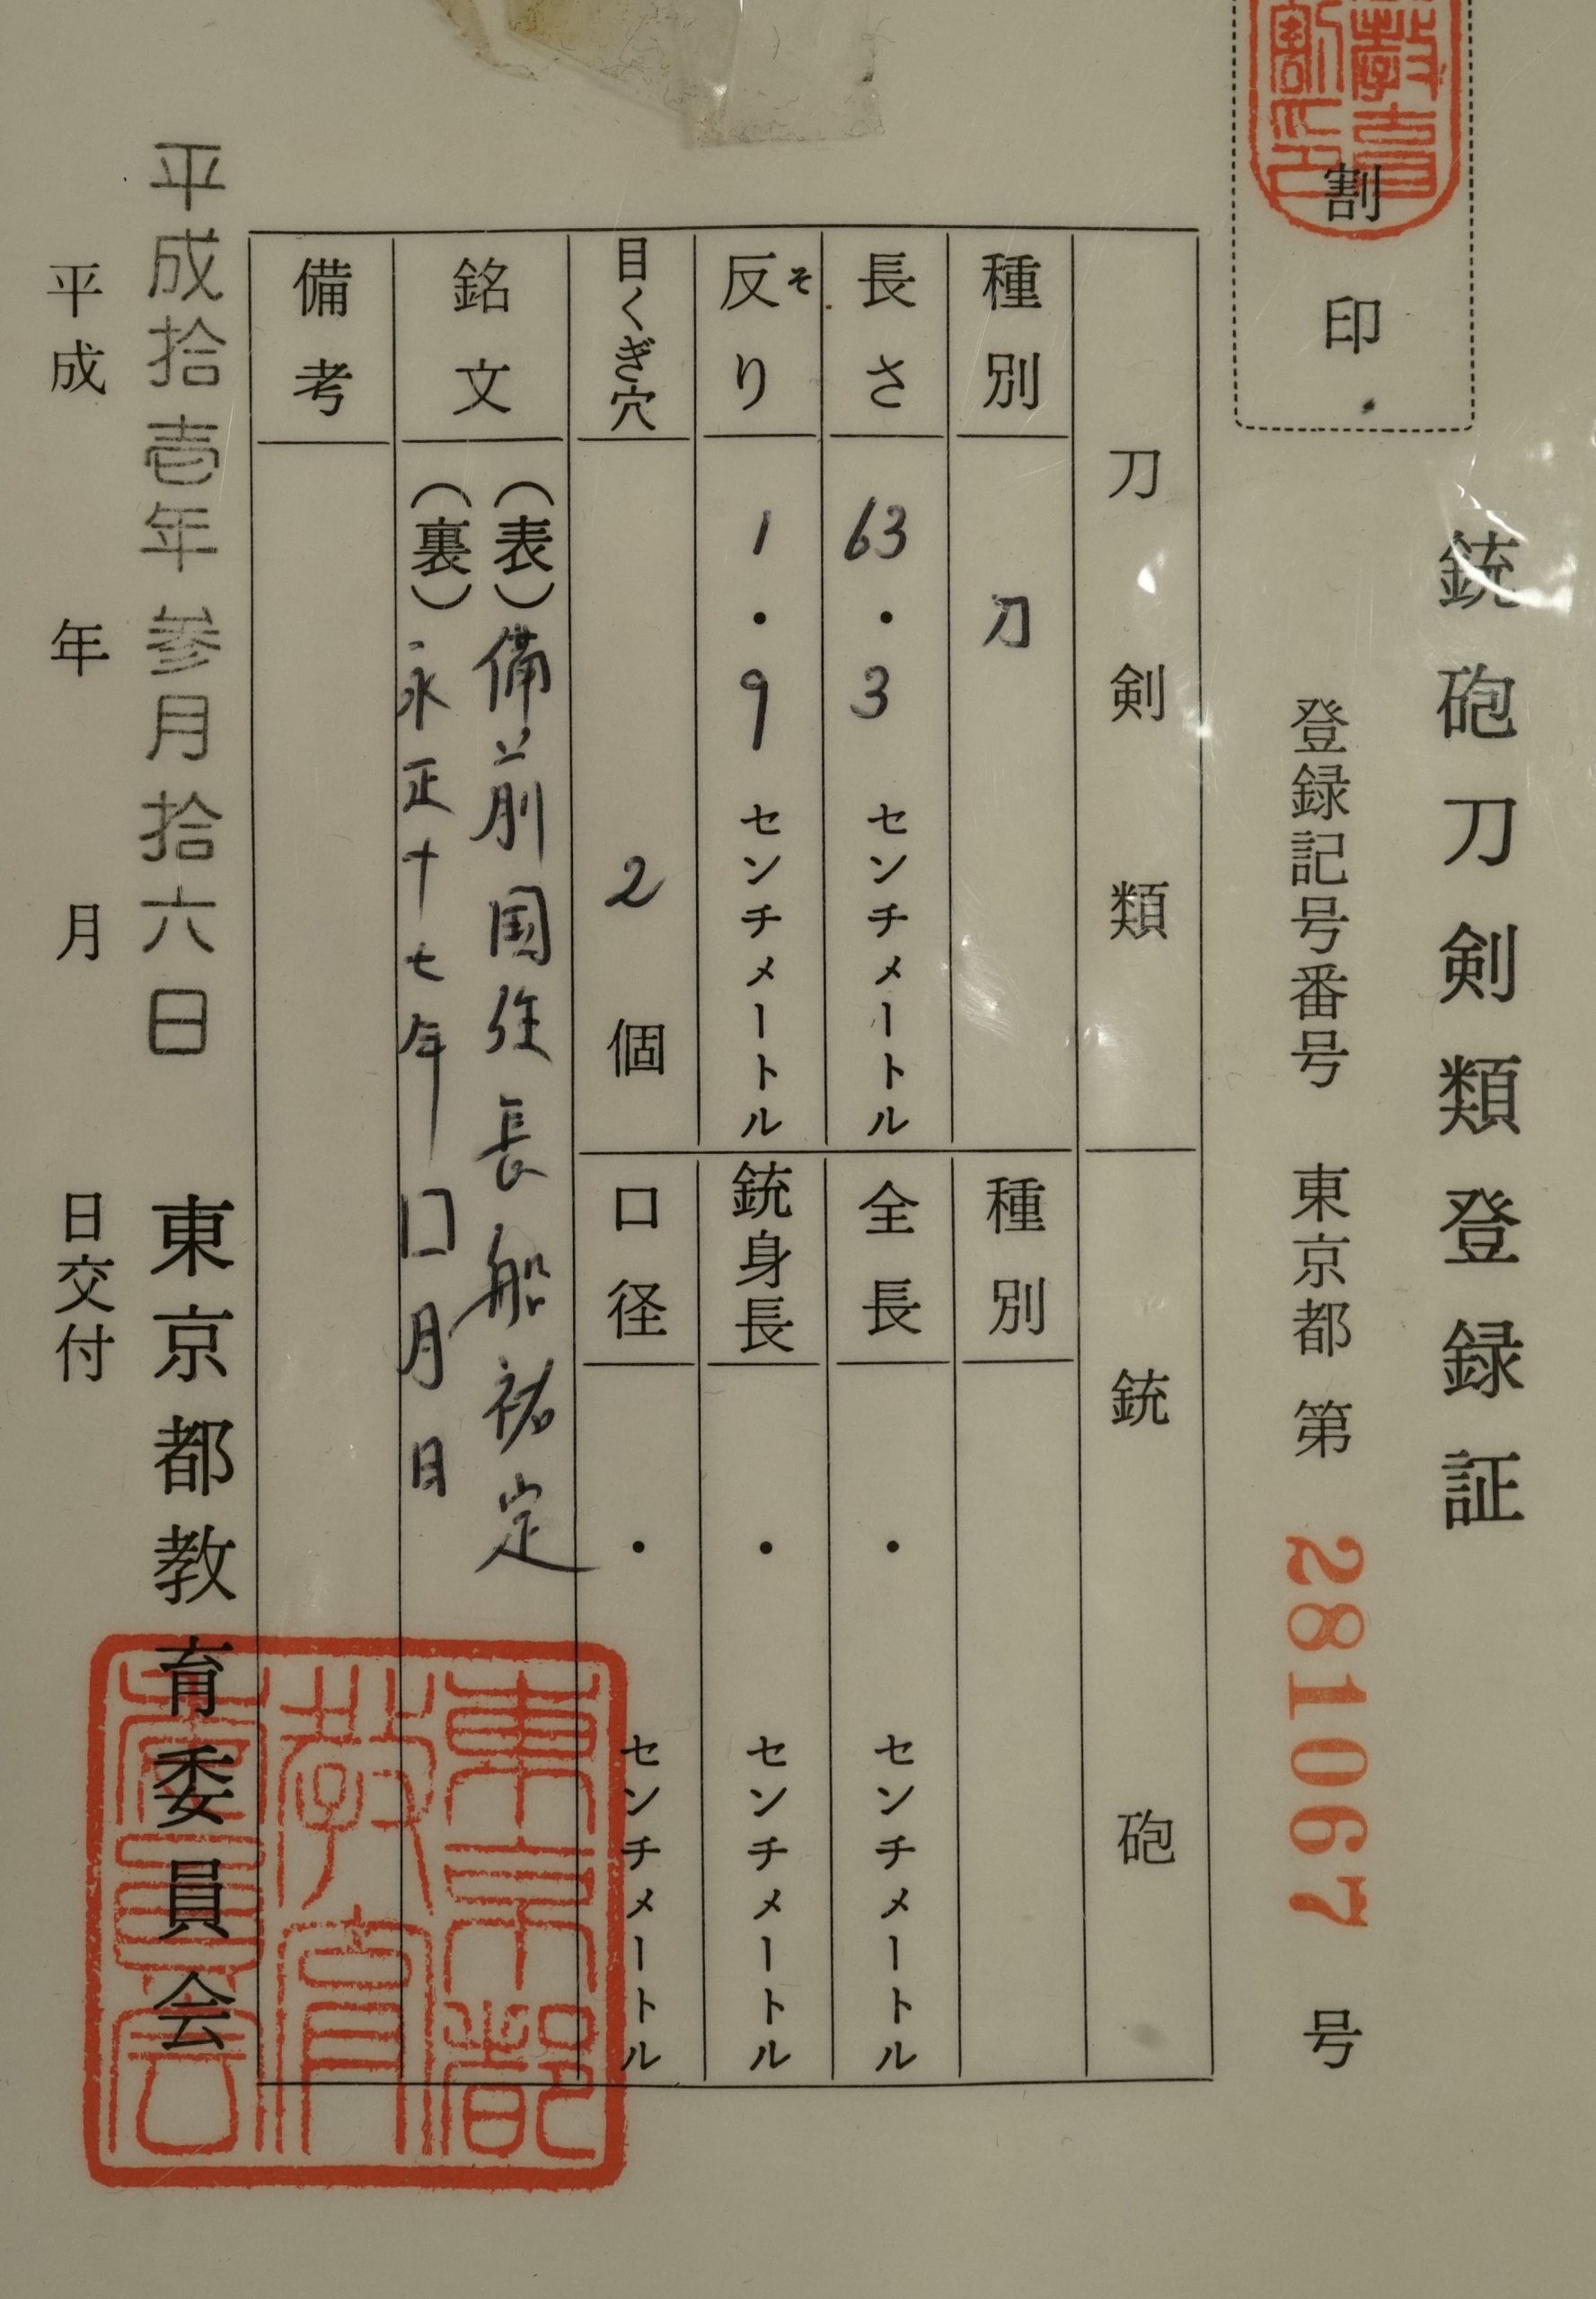 銃砲刀剣類登録証
割印
登録記号番号 東京都 第 281067 号
刀剣類
種別 刀
長さ 63.3 センチメートル
反り そ 1.9 センチメートル
目くぎ穴 2 個
銃砲
種別
全長 ・ センチメートル
銃身長 ・ センチメートル
口径 ・ センチメートル
銘文 (表) 備前国住長船祐定
(裏) 永正十七年 口月日
備考
平成拾壱年参月拾六日
東京都教育委員会
平成 年 月 日交付
東京都教育委員会